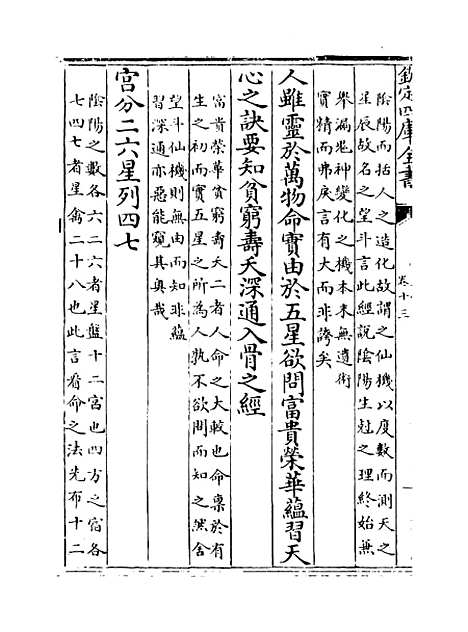 欽定四庫全書
卷十三
陰陽而括人之造化故謂之仙機以度數而測天之
星辰故名之望斗言此經說陰陽生尅之理終始無
舉漏鬼神變化之機本末無遺術
實精而弗戾言有大而非誇矣
人雖靈於萬物命實由於五星欲問富貴榮華蘊習天
心之訣要知貧窮壽夭深通入骨之經
富貴榮華貧窮壽夭二者人命之大較也命稟於有
生之初而實五星之所為人孰不欲問而知之然舍
望斗仙機則無由而知非蘊
習深通亦惡能窺其奥哉
宫分二六星列四七
陰陽之數各六二六者星盤十二宫也四方之宿各
七四七者星禽二十八也此言看命之法先布十二